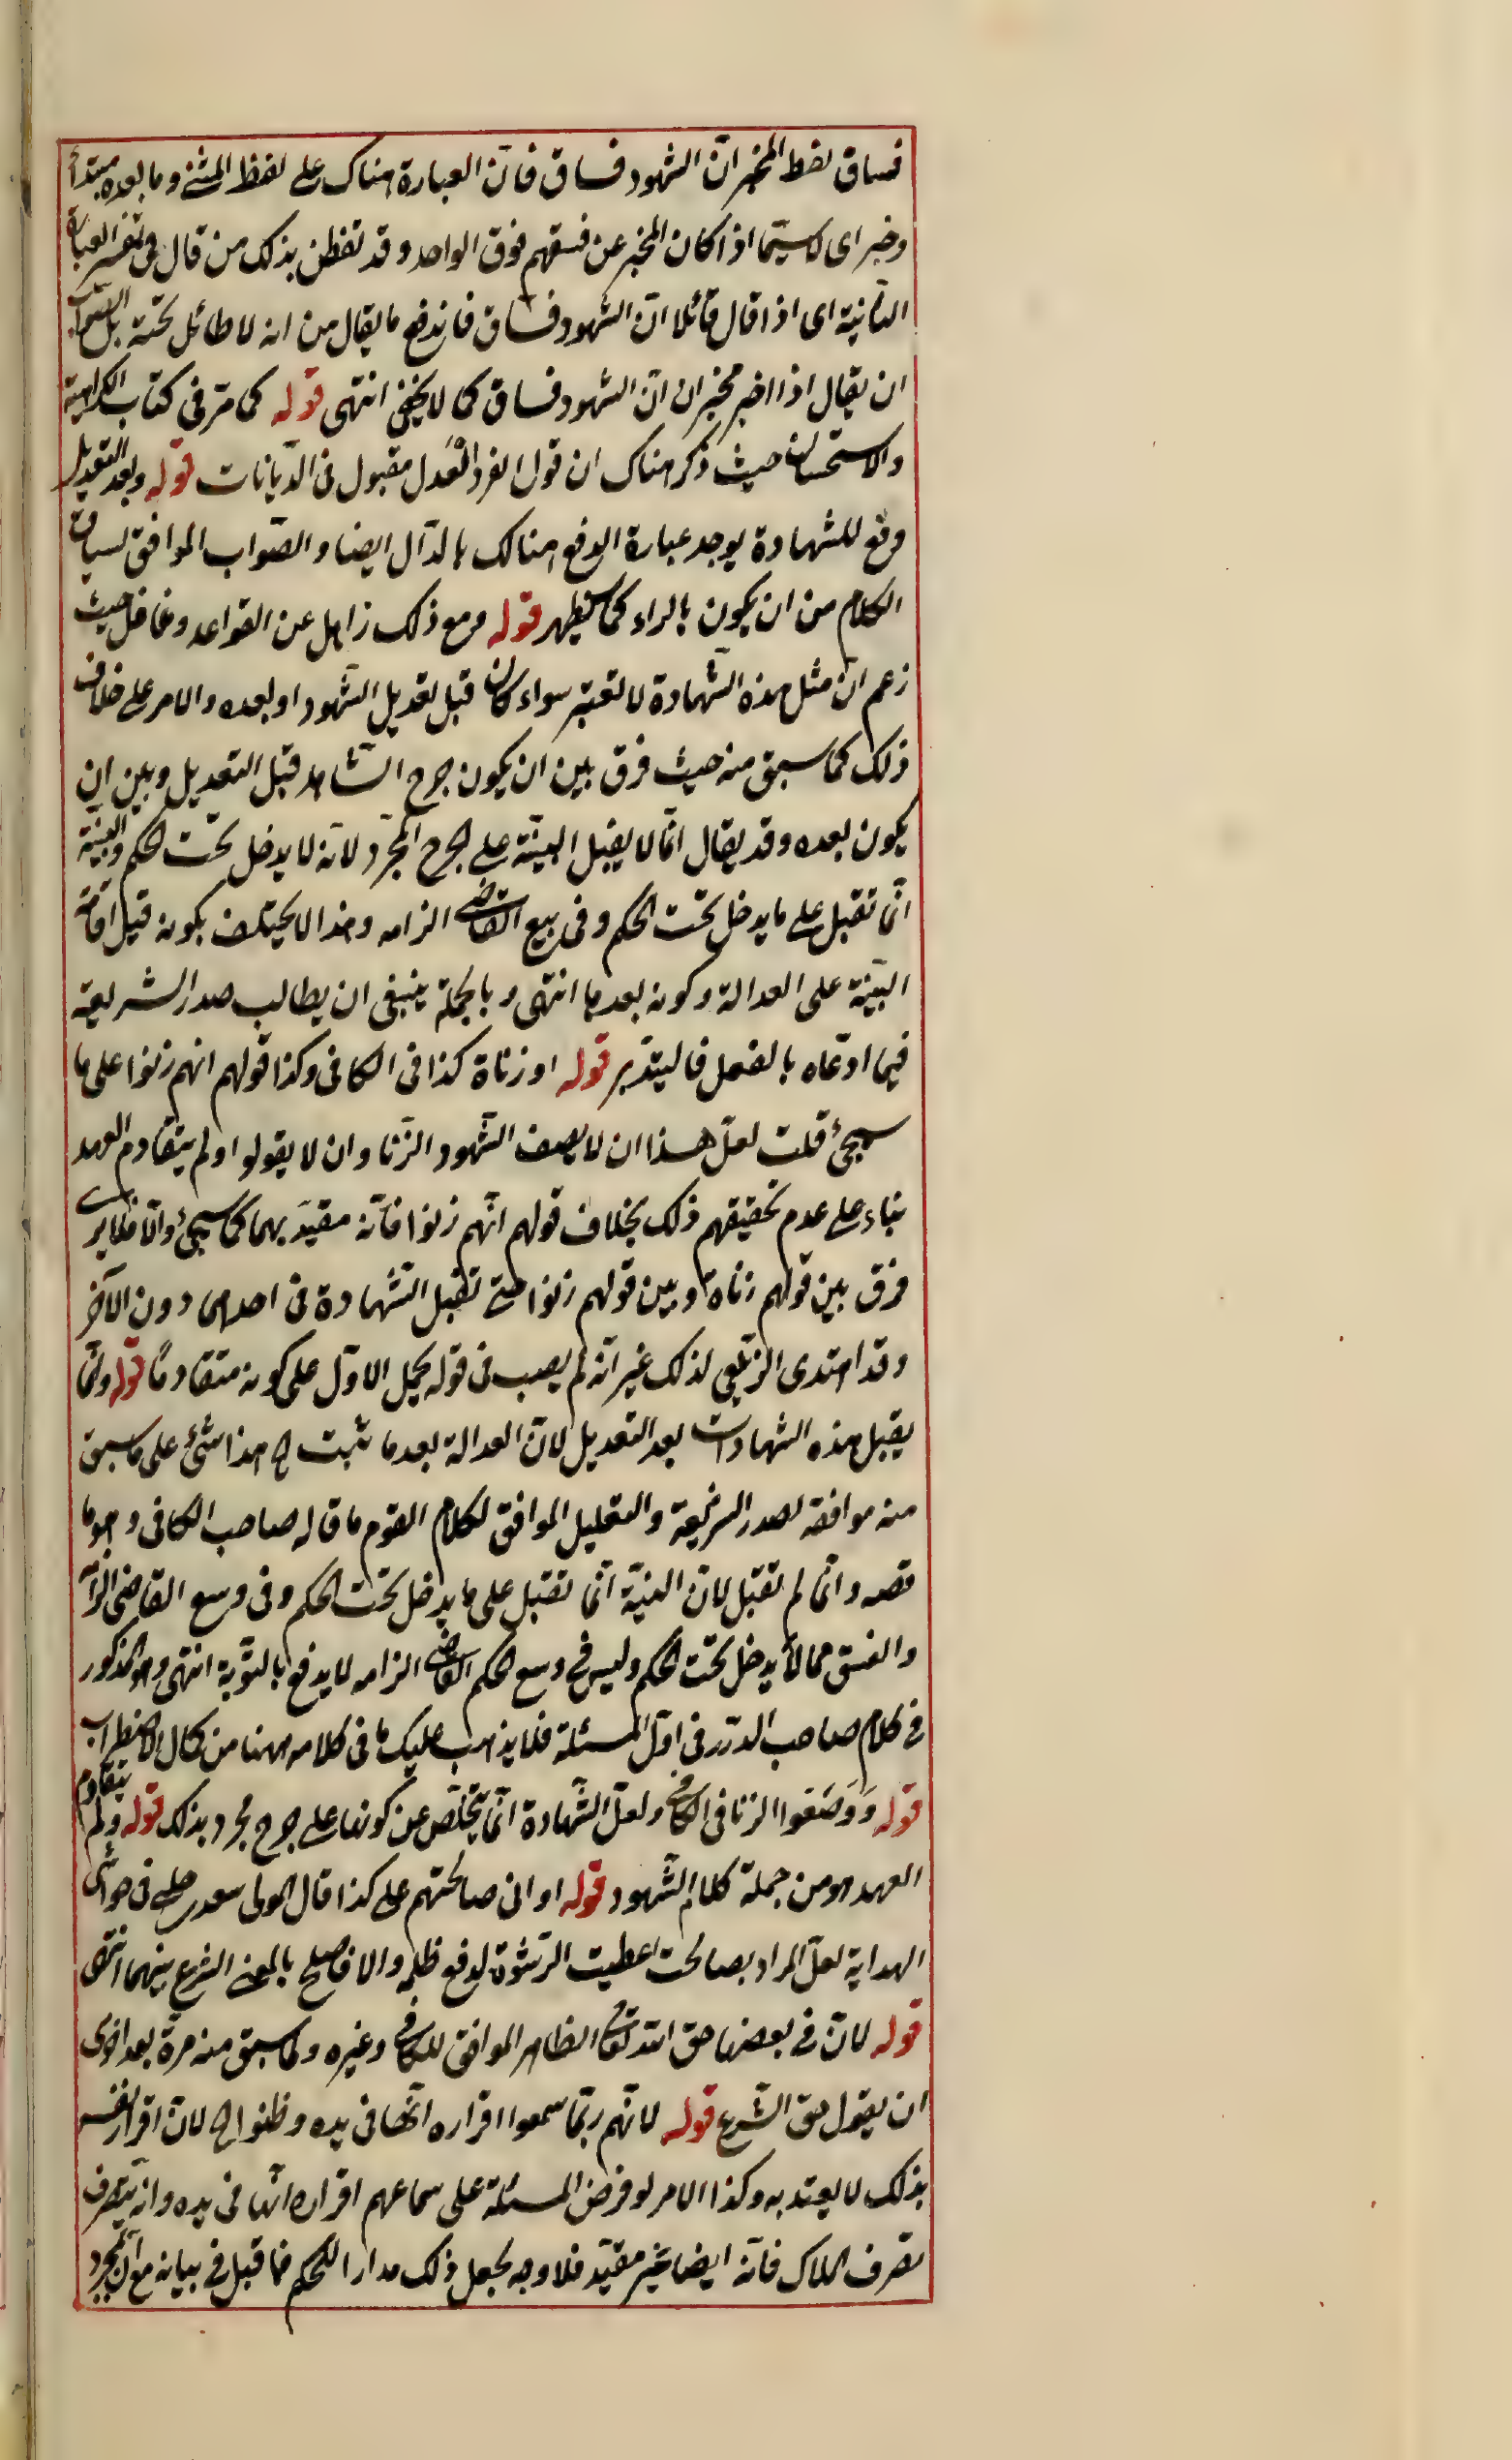 فساق لفظ المخبر ان الشهود فساق فان العبارة هناك على لفظ المثنى وما بعده مبتدأ
وخبر اى لاسيما اذا كان المخبر عن فسقهم فوق الواحد وقد تفطن بذلك من قال فى تفسير العبارة
الثانية اى اذا قال قائلا ان الشهود فساق فاندفع ما يقال من انه لا طائل تحته بل الصواب
ان يقال اذا اخبر مخبران ان الشهود فساق كما لا يخفى انتهى قوله كما مر فى كتاب الكراهية
والاستحسان حيث ذكر هناك ان قول الفرد العدل مقبول فى الديانات قوله وبعد التعديل
دفع للشهادة يوجد عبارة الدفع هنالك بالدال ايضا والصواب الموافق لسياق
الكلام من ان يكون بالراء كما سيظهر قوله ومع ذلك زاهل عن القواعد وغافل حيث
زعم ان مثل هذه الشهادة لا تعتبر سواء كان قبل تعديل الشهود او بعده والامر على خلاف
ذلك كما سبق منه حيث فرق بين ان يكون جرح الشاهد قبل التعديل وبين ان
يكون بعده وقد يقال انما لا يقبل البينة على الجرح المجرد لانه لا يدخل تحت الحكم والبينة
انما تقبل على ما يدخل تحت الحكم وفى بيع القاضى الزامه وهذا لا يختلف بكونه قبل اقامة
البينة على العدالة وكونه بعدها انتهى وبالجملة ينبغى ان يطالب صدر الشريعة
فيما ادعاه بالنقل فاليتدبر قوله او زناة كذا فى الكافى وكذا قولهم انهم زنوا على ما
سيجئ قلت لعل هذا ان لا يصف الشهود الزنا وان لا يقولوا ولم يتقادم العهد
بناء على عدم تحقيقهم ذلك بخلاف قولهم انهم زنوا فانه مقيد بهما كما سيجئ والا فلا يرى
فرق بين قولهم زناة وبين قولهم زنوا حتى تقبل الشهادة فى احدهما دون الآخر
وقد اهتدى الزيلعى لذلك غير انه لم يصب فى قوله يحمل الاول على كونه متقادما قوله وانما
يقبل هذه الشهادات بعد التعديل لان العدالة بعد ما ثبت الخ هذا شئ على ما سبق
منه موافقه لصدر الشريعة والتعليل الموافق لكلام القوم ما قاله صاحب الكافى وهو ما
قصه وانما لم تقبل لان البينة انما تقبل على ما يدخل تحت الحكم وفى وسع القاضى الزامه
والفسق مما لا يدخل تحت الحكم وليس فى وسع الحكم القاضى الزامه لا يدفع بالتوبة انتهى وهو المذكور
فى كلام صاحب الدرر فى اول المسئلة فلا يذهب عليك ما فى كلامه ههنا من كمال الاضطراب
قوله ووصفوا الزنا فى الكافى ولعل الشهادة انما يتخلص عن كونها على جرح مجرد بذلك قوله ولم يتقادم
العهد هو من جملة كلام الشهود قوله او انى صالحتهم على كذا قال المولى سعدى چلبى فى حواشى
الهداية لعل المراد بصالحت اعطيت الرشوة لدفع ظلمه والا فاصلح بالمعنى الشرعى بينهما انتهى
قوله لان فى بعضها حق الله تعالى الظاهر الموافق للكافى وغيره وما سبق منه مرة بعد اخرى
ان يقول حق الشرع قوله لانهم ربما سمعوا اقراره انها فى يده وظنوا الخ لان اقراره نفسه
بذلك لا يعتد به وكذا الامر لو فرض المسئلة على سماعهم اقراره انها فى يده وانه يتصرف
تصرف الملاك فانه ايضا غير مقيد فلا وجه لجعل ذلك مدارا للحكم فما قيل فى بيانه مع ان المجرد